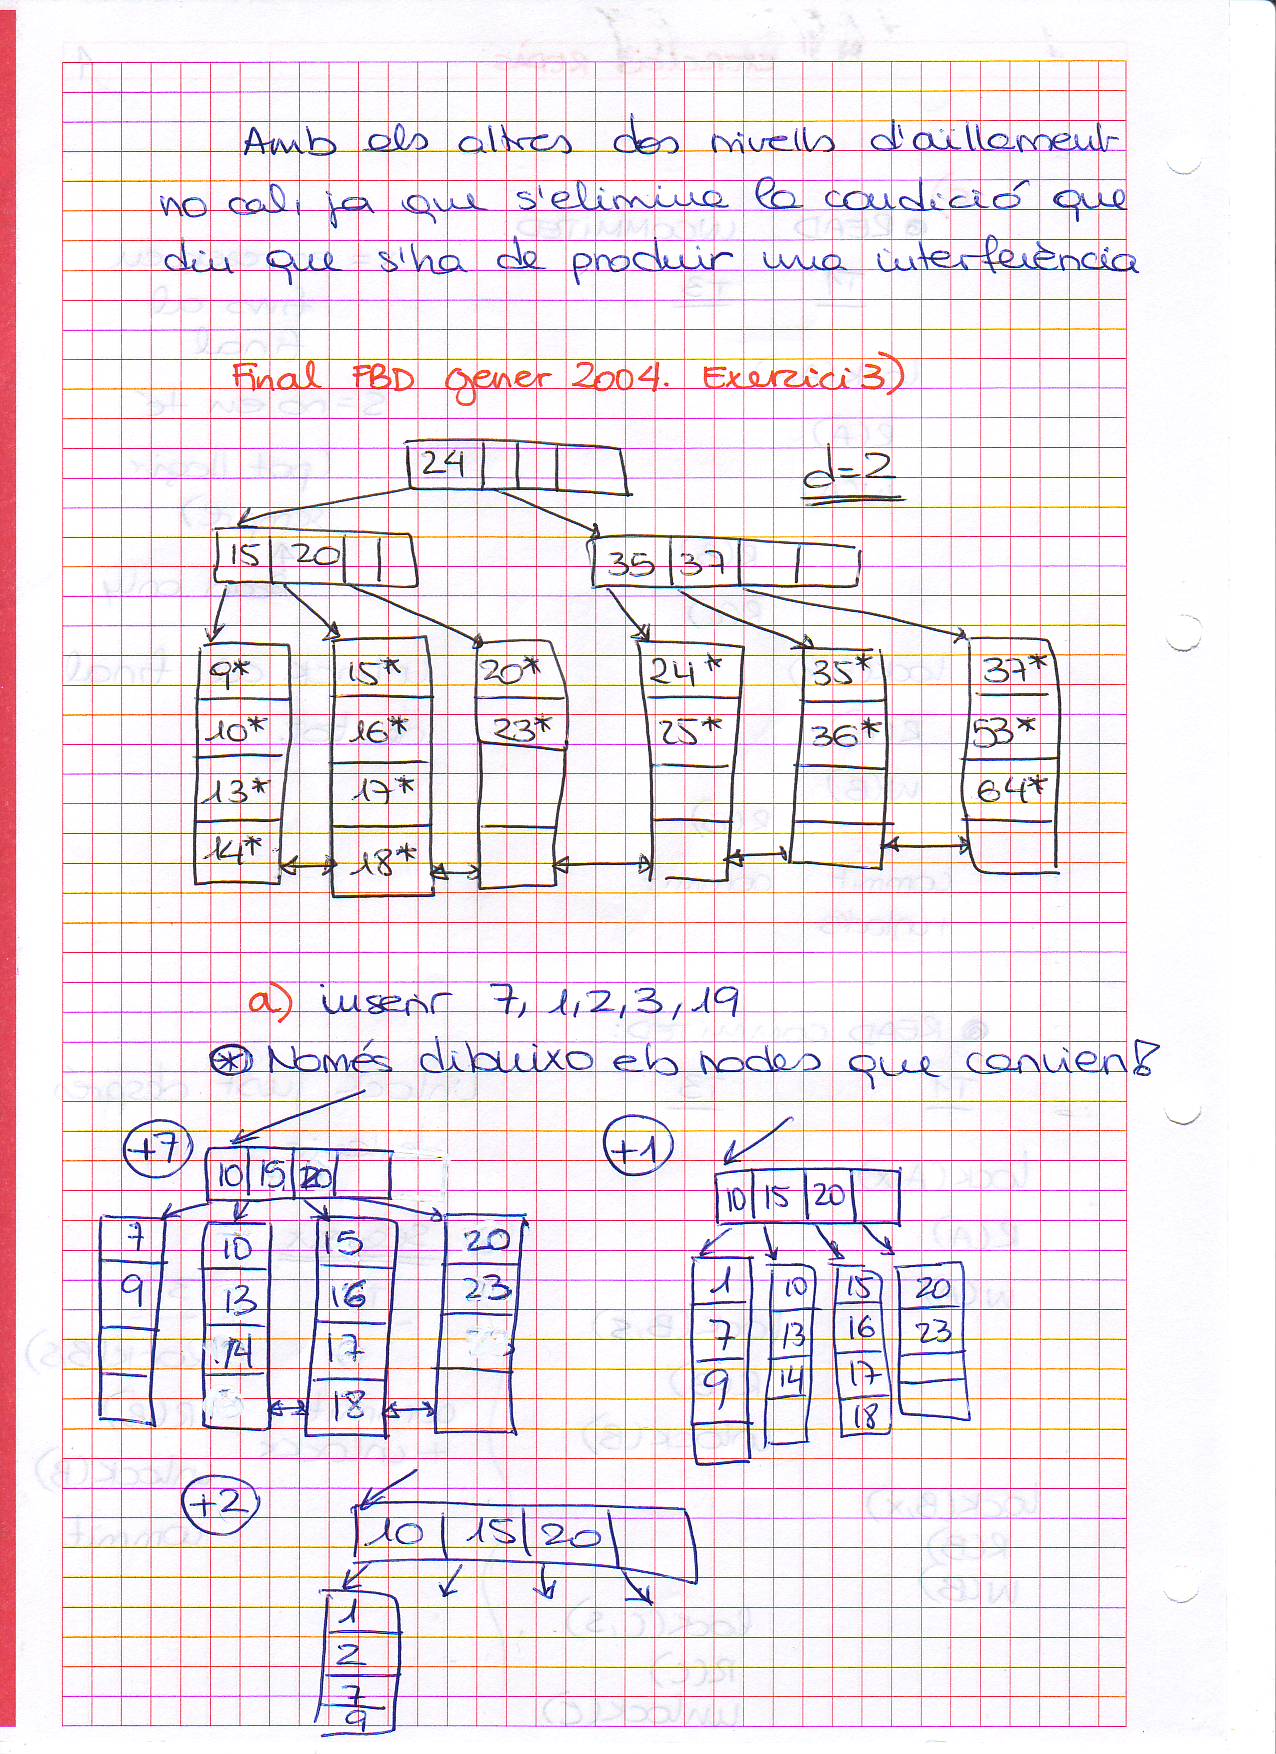 Amb els altres dos nivells d'aïllament
no cal, ja que s'elimina la condició que
diu que s'ha de produir una interferència
Final FBD gener 2004. Exercici 3)
24
d=2
15 20
35 37
9* 15* 20* 24* 35* 37*
10* 16* 23* 25* 36* 53*
13* 17* 64*
14* 18*
a) inserir 7, 1, 2, 3, 19
* Només dibuixo els nodes que canvien!
+7
10 15 20
7 10 15 20
9 13 16 23
14 17
18
+1
10 15 20
1 10 15 20
7 13 16 23
9 14 17
18
+2
10 15 20
1
2
7
9